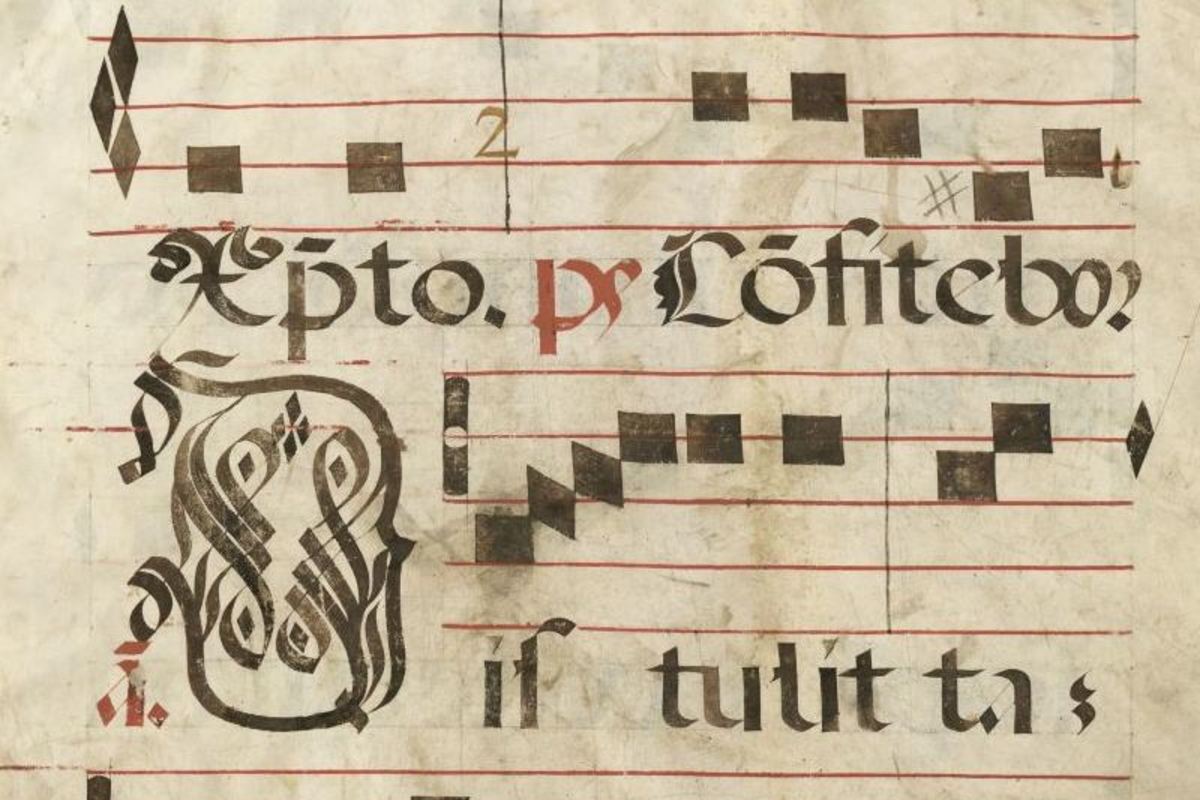 2
Xp̄to. ps Cōfiteboꝛ
ā. Diſ tulit ta